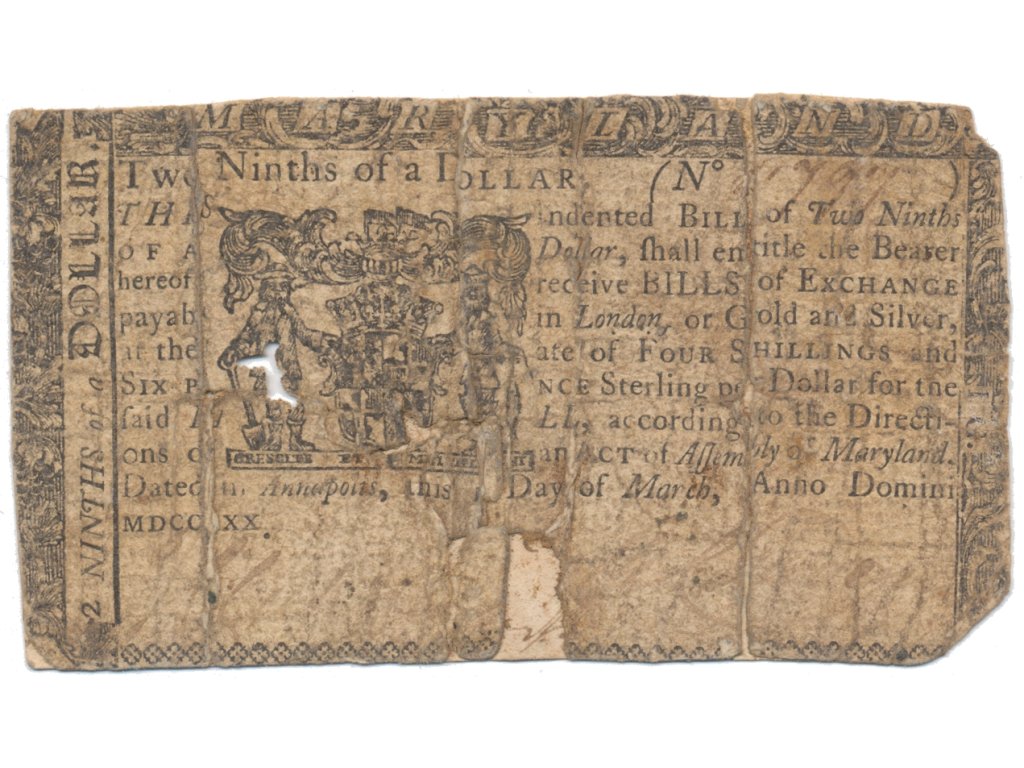 MARYLAND
2 NINTHS of a DOLLAR.
Two Ninths of a DOLLAR, (N°
THIS indented BILL of Two Ninths
OF A Dollar, ſhall entitle the Bearer
hereof receive BILLS of EXCHANGE
payab in London, or Gold and Silver,
at the ate of FOUR SHILLINGS and
SIX P NCE Sterling per Dollar for the
ſaid LL, according to the Directi-
ons o an ACT of Aſſembly of Maryland.
CRESCITE ET
Dated in Annapolis, this Day of March, Anno Domini
MDCC XX.